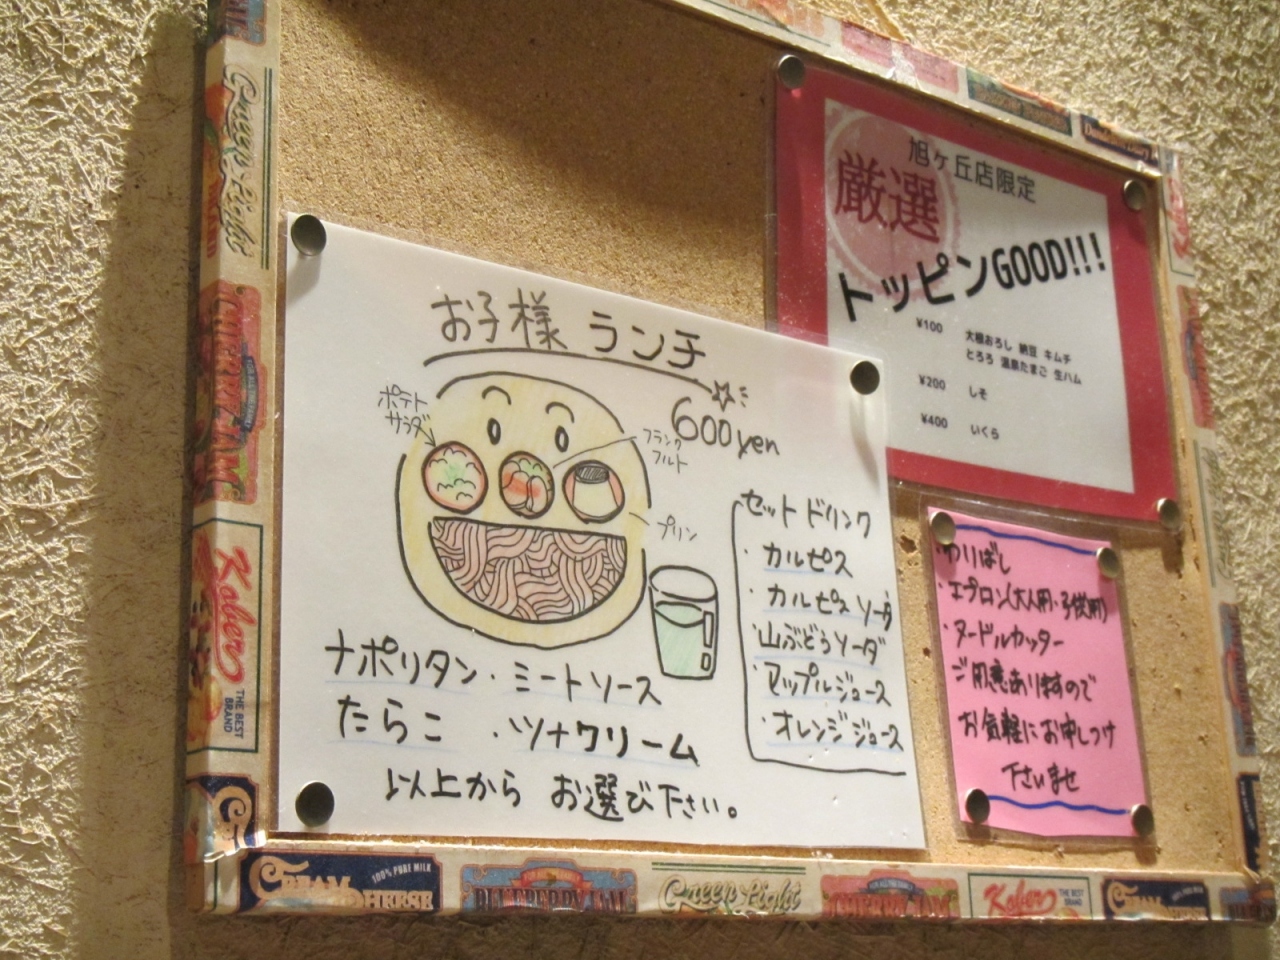 お子様ランチ
600yen
ポテト
サラダ
フランク
フルト
プリン
セットドリンク
・カルピス
・カルピスソーダ
・山ぶどうソーダ
・アップルジュース
・オレンジジュース
ナポリタン・ミートソース
たらこ ・ツナクリーム
以上から お選び下さい。
旭ヶ丘店限定
厳選
トッピンGOOD!!!
¥100 大根おろし 納豆 キムチ
とろろ 温泉たまご 生ハム
¥200 しそ
¥400 いくら
・わりばし
・エプロン(大人用・子供用)
・ヌードルカッター
ご用意ありますので
お気軽にお申しつけ
下さいませ
Green Light
CHERRY JAM
Kober
THE BEST
BRAND
CREAM CHEESE
100% PURE MILK
BLUEBERRY JAM
Green Light
CHERRY JAM
Kober
THE BEST
BRAND
CREAM CHEESE